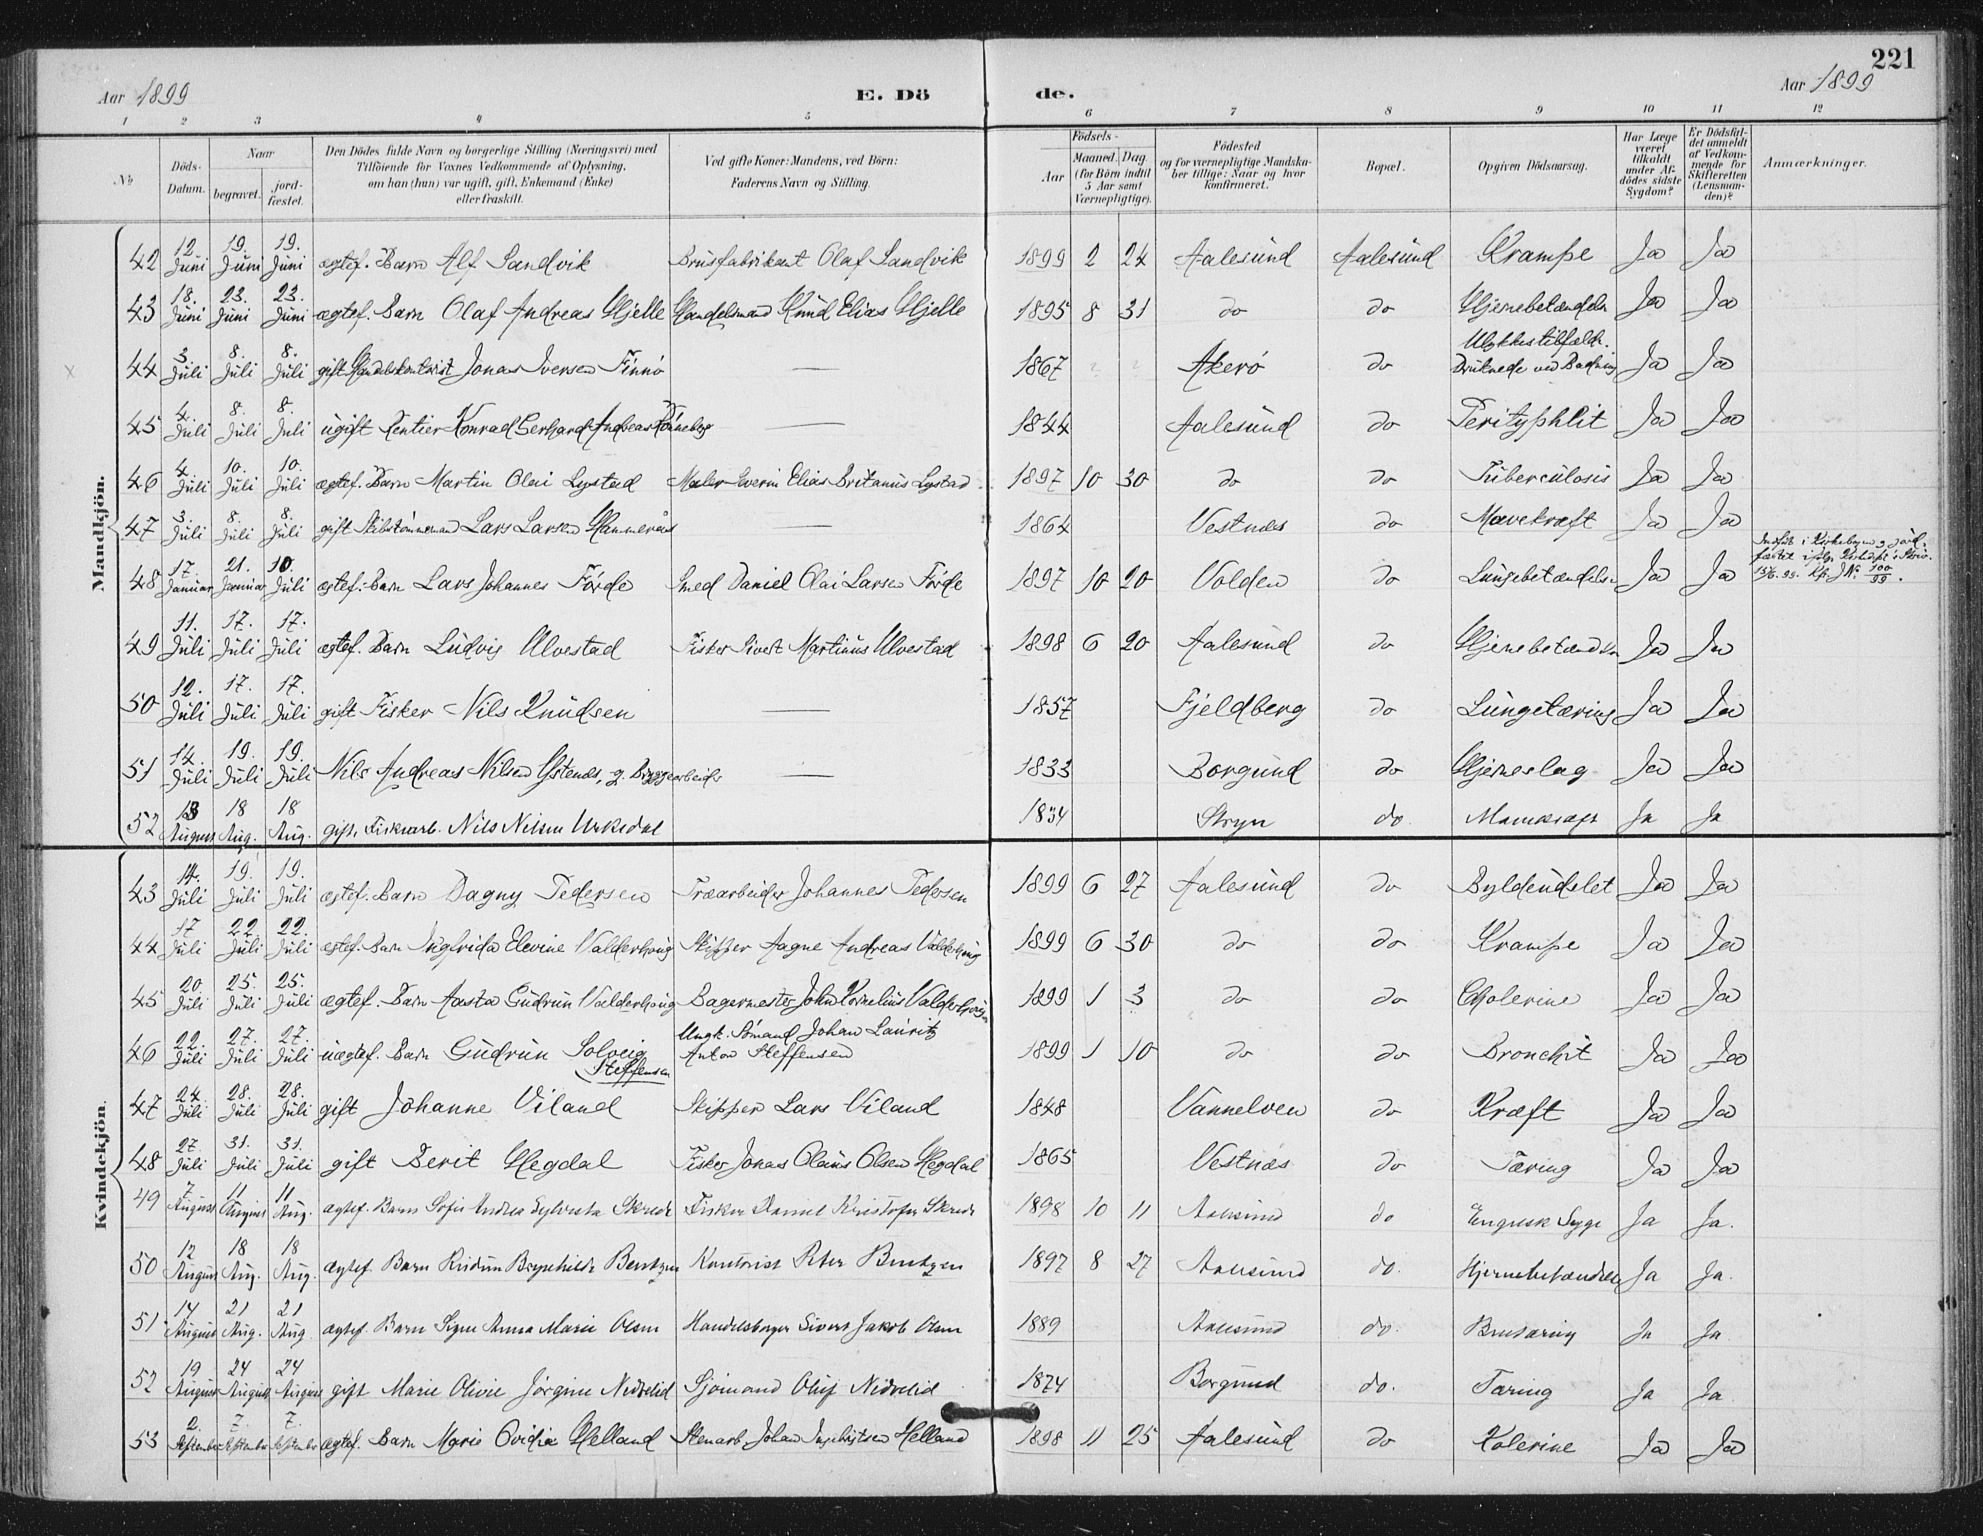 221
Aar 1899 E. Dö de. Aar 1899
1 2 3 4 5 6 7 8 9 10 11 12
№
Döds-Datum.
Naar
begravet.
jord-fæstet.
Den Dödes fulde Navn og borgerlige Stilling (Næringsvei) med
Tilföiende for Voxnes Vedkommende af Oplysning,
om han (hun) var ugift, gift, Enkemand (Enke)
eller fraskilt.
Ved gifte Koner: Mandens, ved Börn:
Faderens Navn og Stilling.
Födsels-
Aar
Maaned. Dag
(for Börn indtil
5 Aar samt
Værnepligtige).
Födested
og for værnepligtige Mandska-
ber tillige: Naar og hvor
konfirmeret.
Bopæl.
Opgiven Dödsaarsag.
Har Læge
været
tilkaldt
under Af-
dödes sidste
Sygdom?
Er Dödsfal-
det anmeldt
af Vedkom-
mende for
Skifteretten
(Lensman-
den)?
Anmærkninger.
Mandkjön.
42 12. Juni 19. Juni 19. Juni ægtef. Barn Alf Sandvik Brusfabrikant Olaf Sandvik 1899 2 24 Aalesund Aalesund Krampe Ja Ja
43 18. Juni 23. Juni 23. Juni ægtef. Barn Olaf Andreas Hjelle Handelsmand Knud Elias Hjelle 1895 8 31 do do Hjernebetændelse Ja Ja
44 3. Juli 8. Juli 8. Juli gift Handelskontorist Jonas Iversen Finnö — 1867 Akerö do Ulykkestilfælde. Druknede ved Badning Ja Ja
45 4. Juli 8. Juli 8. Juli ugift Rentier Konrad Gerhard Andreas Rönneberg — 1844 Aalesund do Perityphlit Ja Ja
46 4. Juli 10. Juli 10. Juli ægtef. Barn Martin Olai Lystad Maler Elias Lystad 1897 10 30 do do Tuberculosis Ja Ja
47 3. Juli 8. Juli 8. Juli gift Skibstömmermand Lars Larsen Hammeraas — 1864 Vestnæs do Mavekræft Ja Ja
48 17. Januar 21. Januar 10. Juli ægtef. Barn Lars Johannes Förde Smed Daniel Olai Larsen Förde 1897 10 20 Volden do Lungebetændelse Ja Ja Indført i Kirkebogen og jord-
fæstet ifølge
100/99.
49 11. Juli 17. Juli 17. Juli ægtef. Barn Ludvig Ulvestad Fisker Sivert Martinus Ulvestad 1898 6 20 Aalesund do Hjernebetændelse Ja Ja
50 12. Juli 17. Juli 17. Juli gift Fisker Nils Knudsen — 1857 Fjeldberg do Lungetæring Ja Ja
51 14. Juli 19. Juli 19. Juli Nils Andreas Nilsen Ystenes, g. Bryggearbeider — 1833 Borgund do Hjerneslag Ja Ja
52 13 August 18 Aug. 18 Aug. gift, Fiskearb. Nils Nilsen Urkedal 1834 Stryn do. Mavekræft Ja Ja
Kvindekjön.
43 14. Juli 19. Juli 19. Juli ægtef. Barn Dagny Pedersen Træarbeider Johannes Pedersen 1899 6 27 Aalesund do Byldeudslet Ja Ja
44 17 Juli 22. Juli 22. Juli ægtef. Barn Ingfrida Elevine Valderhoug Skipper Aagne Andreas Valderhoug 1899 6 30 do do Krampe Ja Ja
45 20. Juli 25. Juli 25. Juli ægtef. Barn Aasta Gudrun Valderhoug Bagermester John Kornelius Valderhoug 1899 1 3 do do Cholerine Ja Ja
46 22. Juli 27. Juli 27. Juli uægtef. Barn Gudrun Solveig Steffensen Ungk. Sömand Johan Lauritz Anton Steffensen 1899 1 10 do do Bronchit Ja Ja
47 24. Juli 28. Juli 28. Juli gift Johanne Viland Skipper Lars Viland 1848 Vannelven do Kræft Ja Ja
48 27. Juli 31. Juli 31. Juli gift Berit Hegdal Fisker Jonas Olaus Olsen Hegdal 1865 Vestnæs do Tæring Ja Ja
49 7 August 11 August 11 Aug. ægtef. Barn Sofie Andrea Sylvesta Skrede Fisker Daniel Kristofer Skrede 1898 10 11 Aalesund do Engelsk Syge Ja Ja.
50 12 August 18 Aug. 18 Aug. ægtef. Barn Brynhilde Bentzen Kontorist Peter Bentzen 1897 8 27 Aalesund do. Hjernebetændelse Ja Ja.
51 14 August 21 Aug. 21 Aug ægtef. Barn Signe Anna Marie Olsen Handelsborger Sivert Jakob Olsen 1889 Aalesund do. Bentæring Ja Ja
52 19 August 24 August 24 August gift Marie Olivie Jörgine Nedrelid Sjömand Oluf Nedrelid 1874 Borgund do. Tæring Ja Ja
53 2. September 7. September 7. September ægtef. Barn Marie Ovidia Helland Stenarb. Johan Helland 1898 11 25 Aalesund do Kolerine Ja Ja